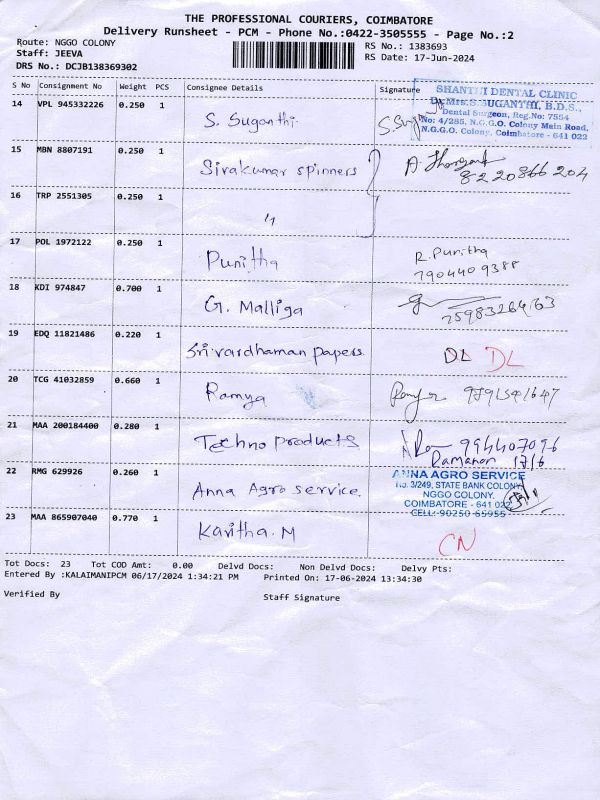 THE PROFESSIONAL COURIERS, COIMBATORE
Delivery Runsheet - PCM - Phone No.:0422-3505555 - Page No.:2
Route: NGGO COLONY
RS No.: 1383693
Staff: JEEVA
RS Date: 17-Jun-2024
DRS No.: DCJB138369302
S No Consignment No Weight PCS Consignee Details Signature
14 VPL 945332226 0.250 1 S. Suganthi
SHANTHI DENTAL CLINIC
Dr.Mrs.S.SUGANTHI, B.D.S.,
Dental Surgeon, Reg.No: 7554
No: 4/285, N.G.G.O. Colony Main Road,
N.G.G.O. Colony, Coimbatore - 641 022
15 MBN 8807191 0.250 1 Sivakumar spinners
8220866204
16 TRP 2551305 0.250 1 "
17 POL 1972122 0.250 1 Punitha R. Punitha
7904409388
18 KDI 974847 0.700 1 G. Malliga
19 EDQ 11821486 0.220 1 Srivardhaman papers. DL DL
20 TCG 41032859 0.660 1 Ramya
21 MAA 200184400 0.280 1 Techno products 994407096
17/6
22 RMG 629926 0.260 1 Anna Agro service.
ANNA AGRO SERVICE
No. 3/249, STATE BANK COLONY
NGGO COLONY.
COIMBATORE - 641 022
CELL: 90250 65955
23 MAA 865907040 0.770 1 Kavitha. M CN
Tot Docs: 23 Tot COD Amt: 0.00 Delvd Docs: Non Delvd Docs: Delvy Pts:
Entered By :KALAIMANIPCM 06/17/2024 1:34:21 PM Printed On: 17-06-2024 13:34:30
Verified By Staff Signature